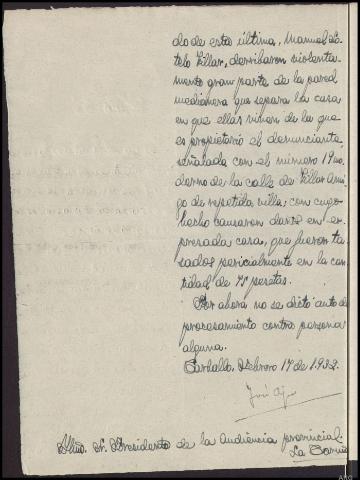 do de esta última, Manuel So-
telo Villar, derribaron violenta-
mente gran parte de la pared
medianera que separa la casa
en que ellas viven de la que
es propietario el denunciante,
señalada con el número 19 mo-
derno de la calle de Villar Ami-
go de repetida villa; con cuyo
hecho causaron daños en ex-
presada casa, que fueron ta-
sados pericialmente en la can-
tidad de pesetas.
Por ahora no se dictó auto de
procesamiento contra persona
alguna.
Carballo, Febrero 17 de 1.932.
José
Iltmo. Sr. Presidente de la Audiencia provincial.-
La Coruña